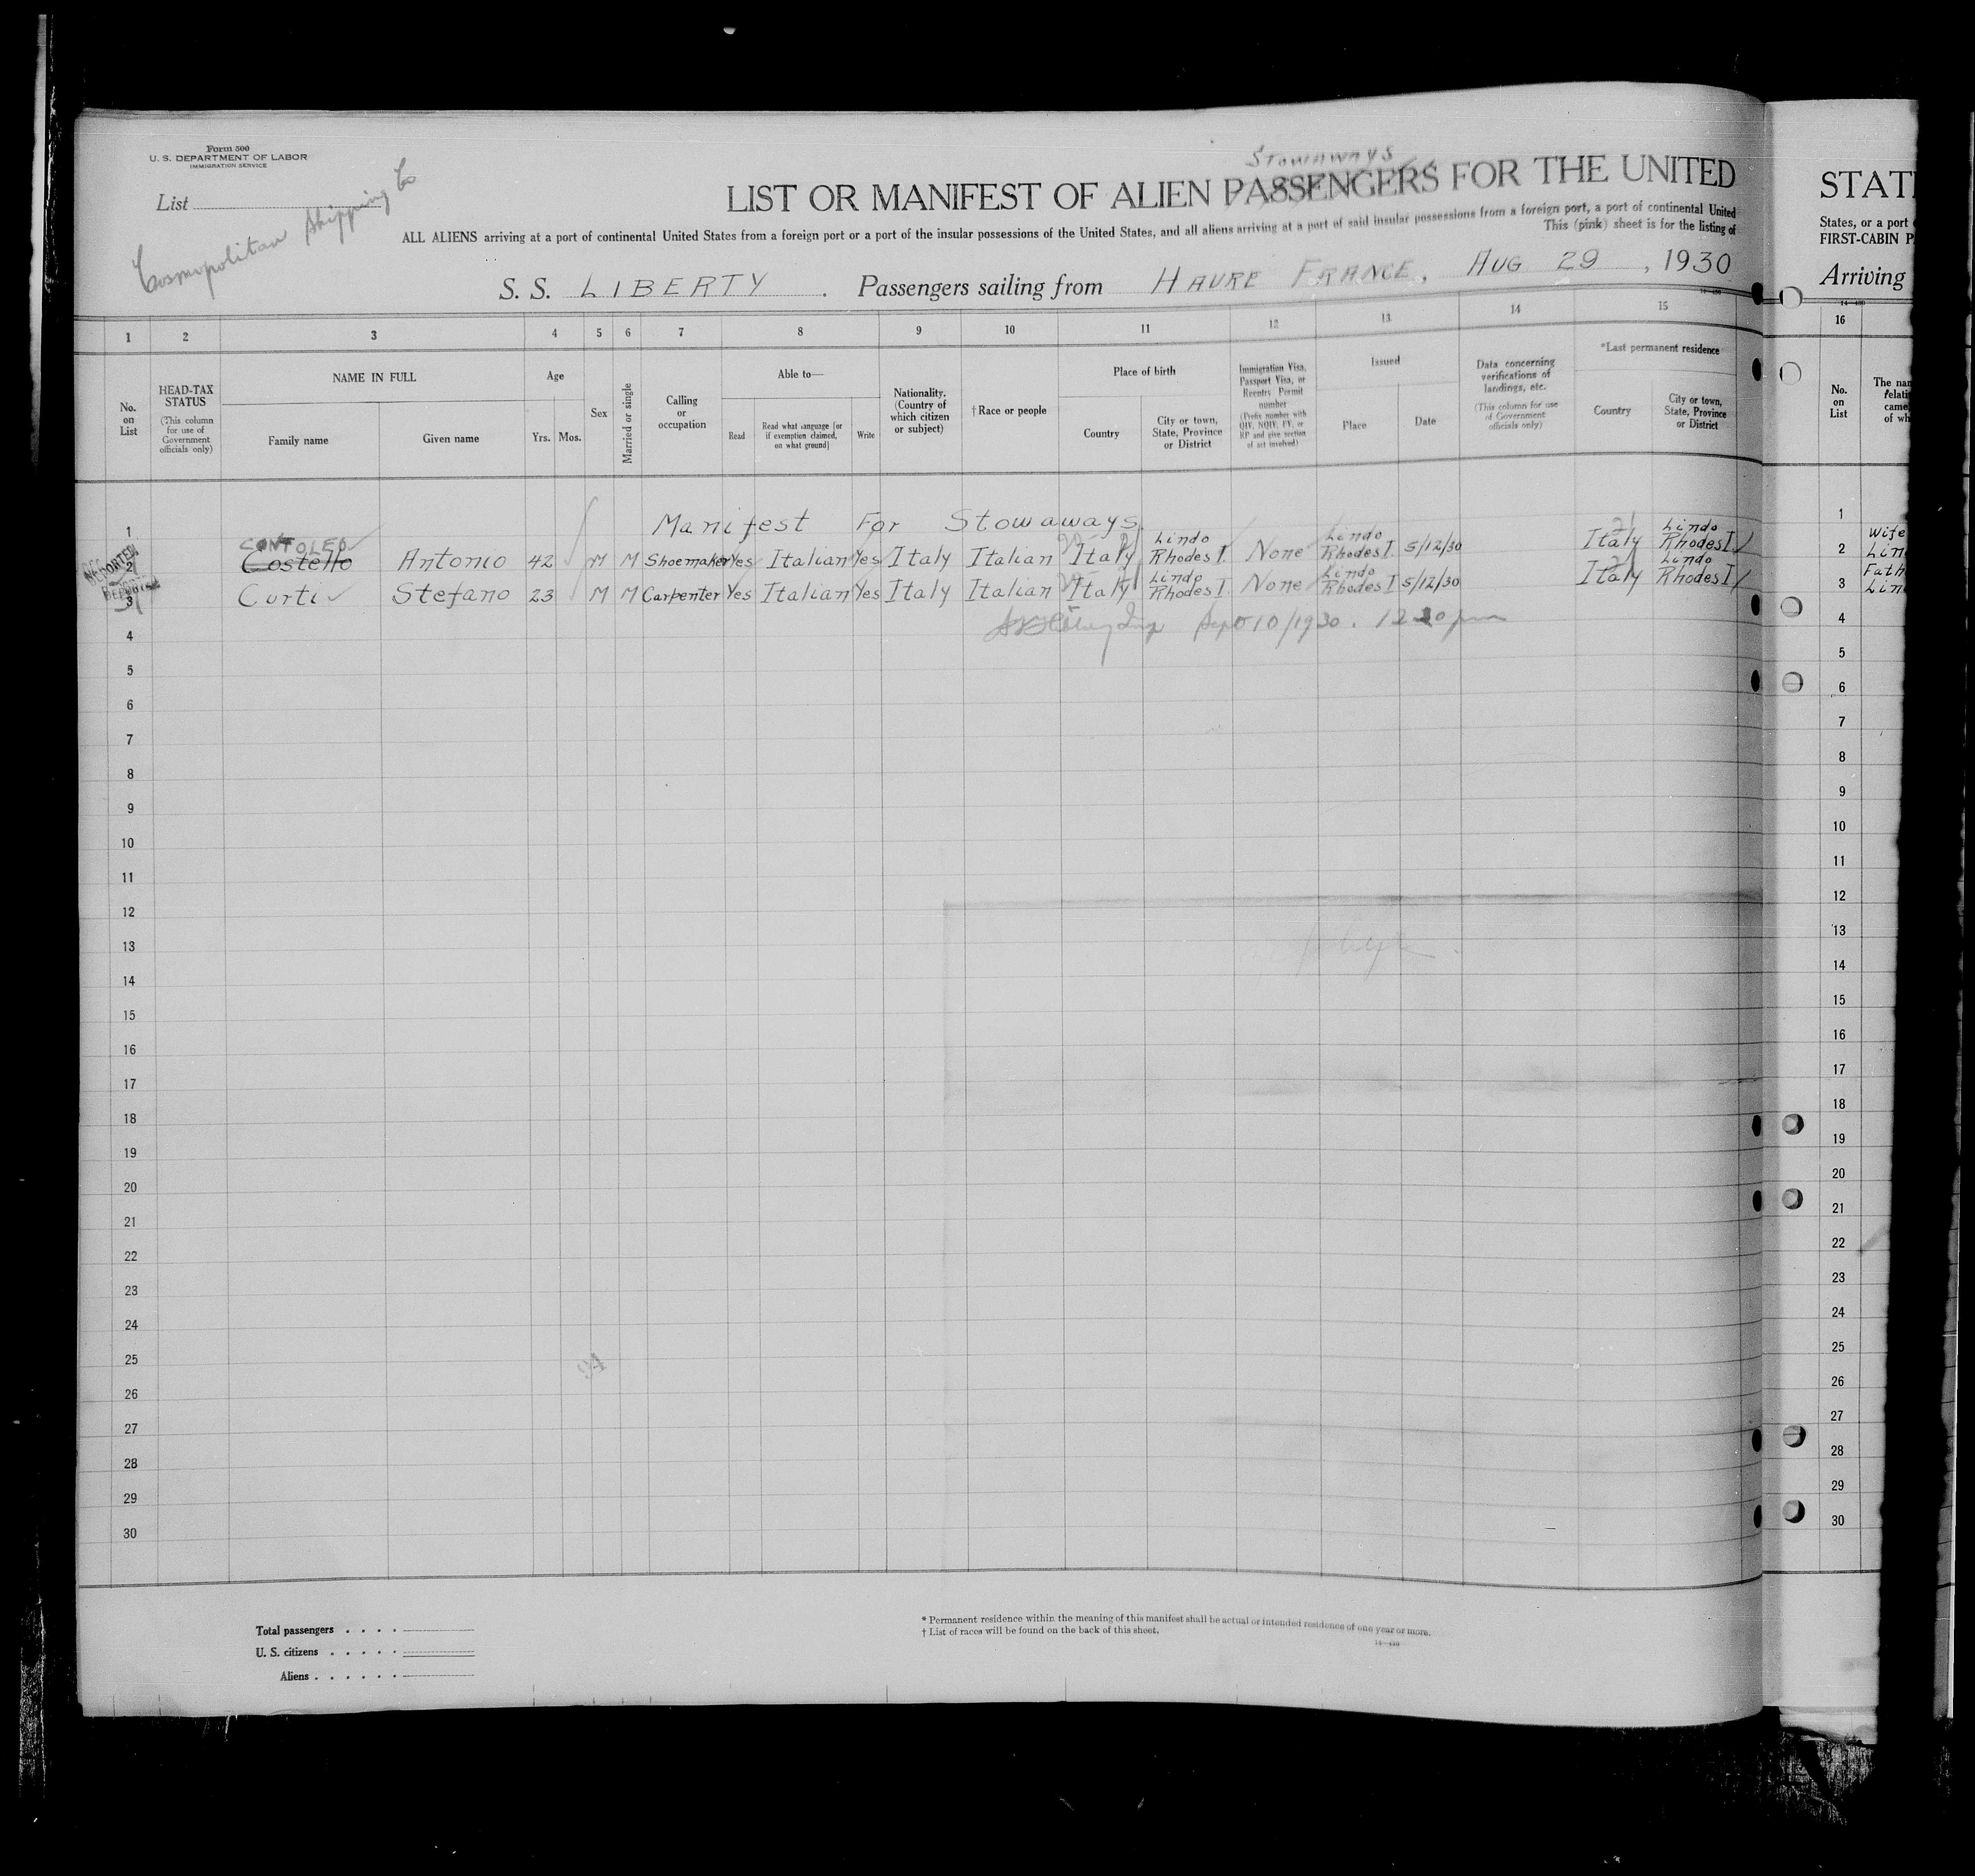 Form 500
U. S. DEPARTMENT OF LABOR
IMMIGRATION SERVICE
List
Cosmopolitan Shipping Co
Stowaways
LIST OR MANIFEST OF ALIEN PASSENGERS FOR THE UNITED
ALL ALIENS arriving at a port of continental United States from a foreign port or a port of the insular possessions of the United States, and all aliens arriving at a port of said insular possessions from a foreign port, a port of continental United
This (pink) sheet is for the listing of
S. S. LIBERTY. Passengers sailing from HAVRE FRANCE, AUG 29, 1930
STAT
States, or a port
FIRST-CABIN P
Arriving
1 2 3 4 5 6 7 8 9 10 11 12 13 14 15 16
No. on List
HEAD-TAX STATUS (This column for use of Government officials only)
NAME IN FULL Family name Given name
Age Yrs. Mos.
Sex
Married or single
Calling or occupation
Able to— Read Read what language [or if exemption claimed, on what ground] Write
Nationality. (Country of which citizen or subject)
†Race or people
Place of birth Country City or town, State, Province or District
Immigration Visa, Passport Visa, or Reentry Permit number (Prefix number with QIV, NQIV, PV, or RP and give section of act involved)
Issued Place Date
Data concerning verifications of landings, etc. (This column for use of Government officials only)
*Last permanent residence Country City or town, State, Province or District
No. on List
The nam relati came of wh
1 Manifest For Stowaways 1
DEPORTED 2 CONTOLEO Costello Antonio 42 M M Shoemaker Yes Italian Yes Italy Italian Italy Lindo Rhodes I. None Lindo Rhodes I. 5/12/30 Italy Lindo Rhodes I 2 Wife Lin
DEPORTED 3 Curti Stefano 23 M M Carpenter Yes Italian Yes Italy Italian Italy Lindo Rhodes I. None Lindo Rhodes I 5/12/30 Italy Lindo Rhodes I 3 Fath Lin
4 Sept 10/1930. 4
5 5
6 6
7 7
8 8
9 9
10 10
11 11
12 12
13 13
14 14
15 15
16 16
17 17
18 18
19 19
20 20
21 21
22 22
23 23
24 24
25 25
26 26
27 27
28 28
29 29
30 30
Total passengers
U. S. citizens
Aliens
* Permanent residence within the meaning of this manifest shall be actual or intended residence of one year or more.
† List of races will be found on the back of this sheet.